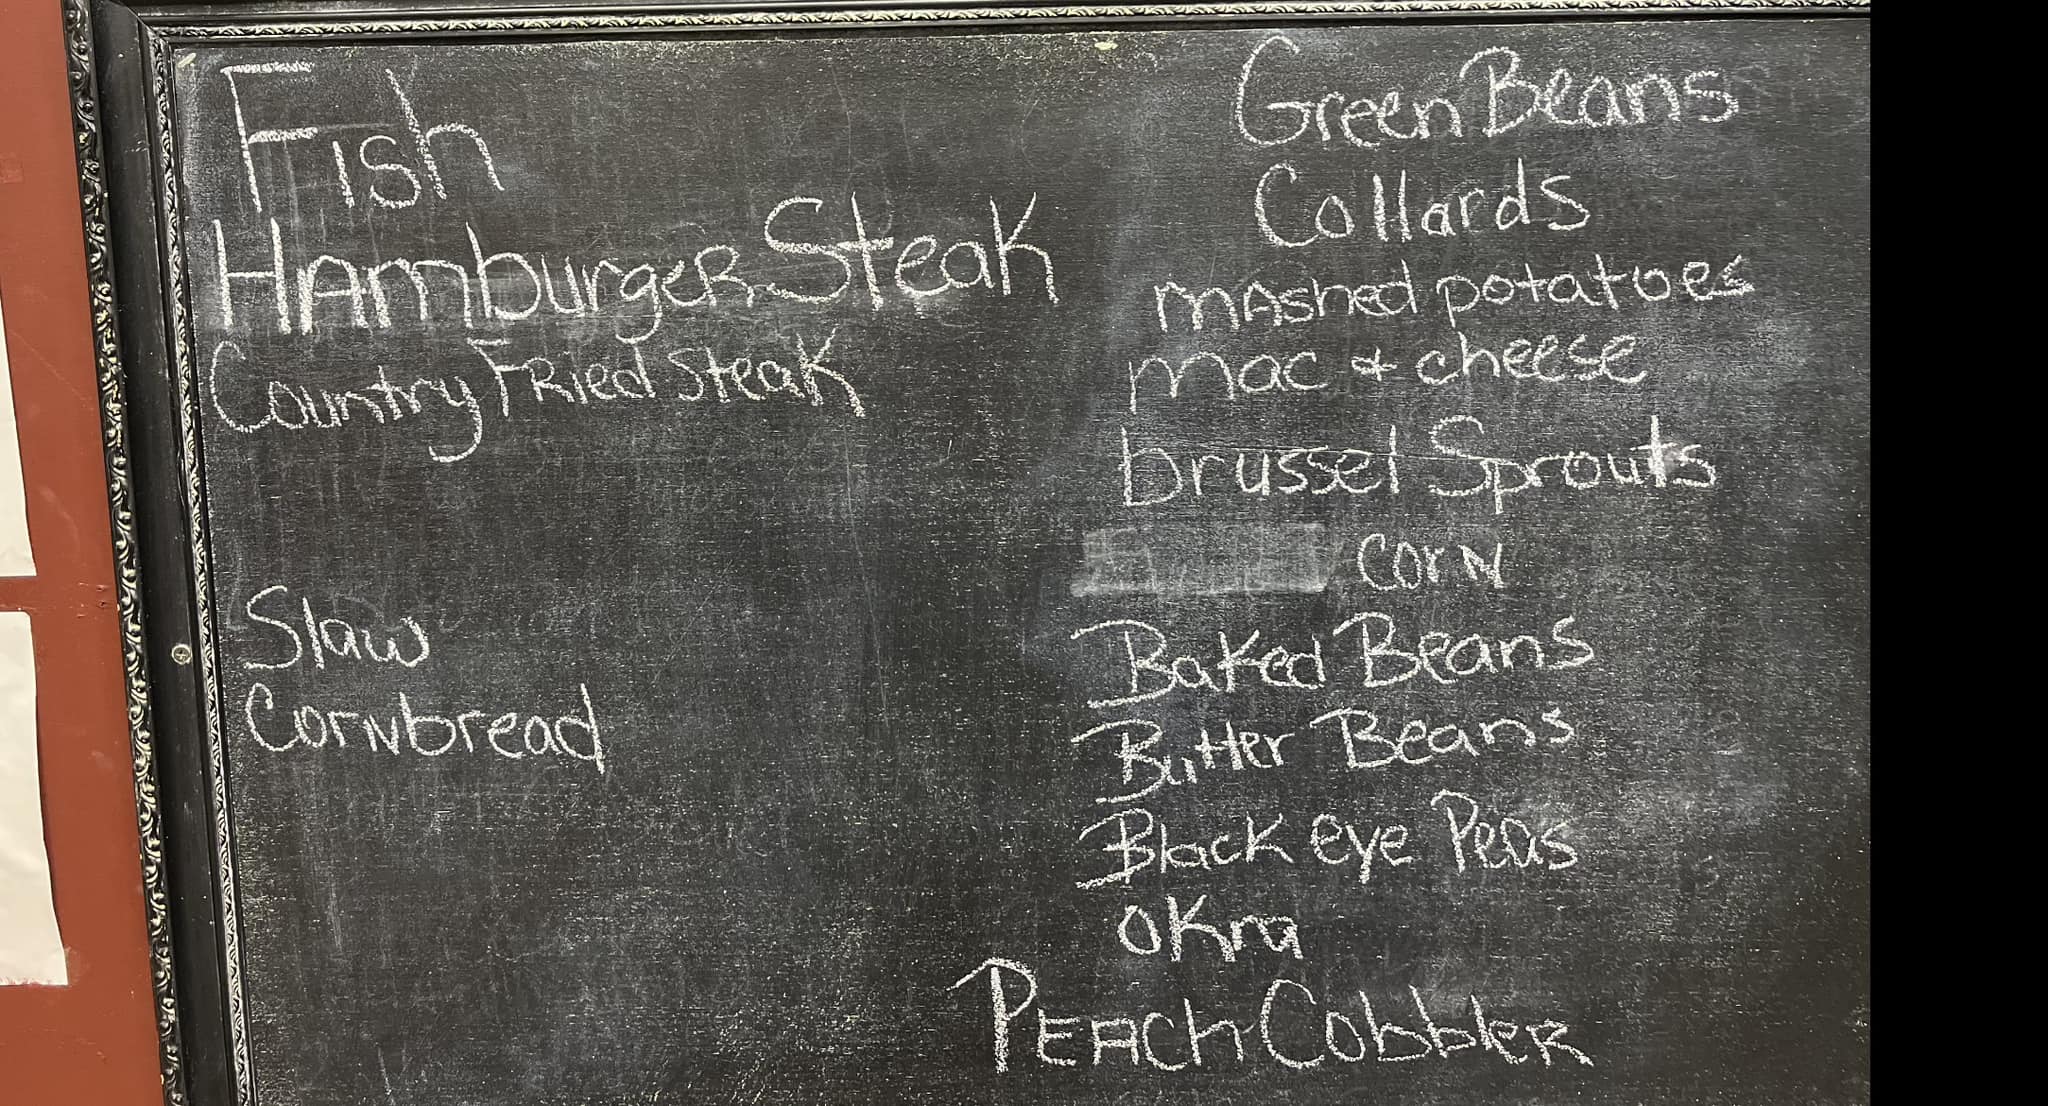 Fish
HAmburgeR Steak
Country FRied Steak
Slaw
CorNbread
Green Beans
Collards
mAshed potatoes
mac & cheese
brussel Sprouts
CorN
Baked Beans
Butter Beans
Black eye Peas
OKra
PEACh CobblER